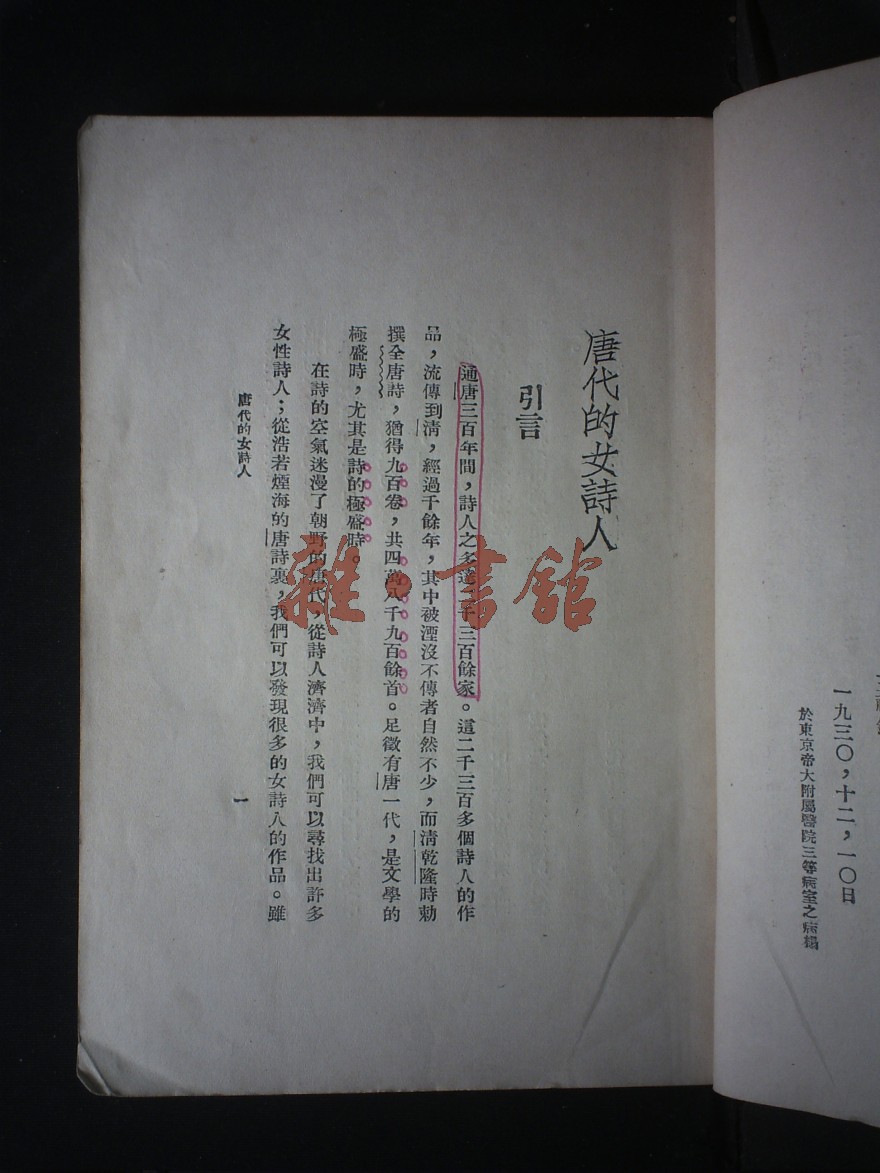 一九三〇，十二，一〇日
於東京帝大附屬醫院三等病室之病榻
唐代的女詩人
引言
通唐三百年間，詩人之多達二千三百餘家。這二千三百多個詩人的作
品，流傳到清，經過千餘年，其中被湮沒不傳者自然不少，而清乾隆時勅
撰全唐詩，猶得九百卷，共四萬八千九百餘首。足徵有唐一代，是文學的
極盛時，尤其是詩的極盛時。
在詩的空氣迷漫了朝野的唐代，從詩人濟濟中，我們可以尋找出許多
女性詩人；從浩若煙海的唐詩裏，我們可以發現很多的女詩人的作品。雖
唐代的女詩人
一
雜·書館